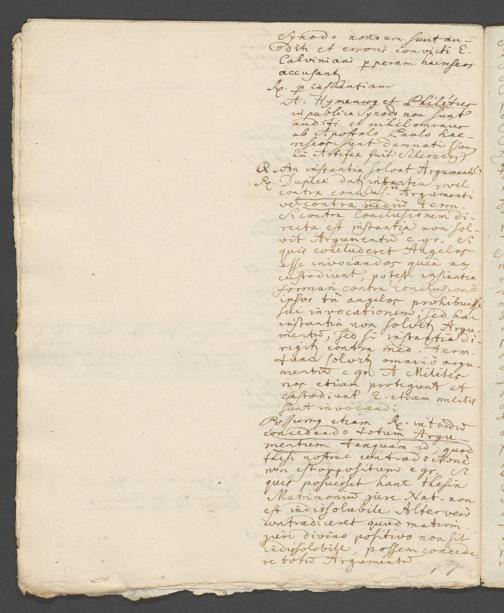 Synodo nondum sunt au-
diti et erroris convicti E.
Calviniani perperam haereseos
accusant
Re. p instantiam
A. Hymeneg et Philetus
in publica Synodo non sunt
auditi et nihilominus
ab Apostolo Paulo hae
reseos sunt damnati
Artifex fuit Scherzerg
Q. An instantia solvat Argumentũ
Re. Duplex datur instantia, vel
contra conclus: Argumenti
vel contra mediũ term.
Si contra Conclusionem di-
recta est instantia non sol-
vit Argumentũ e. gr. Si
quis concluderet Angelos
esse invocandos quia nos
custodiunt, potest instantia
formari contra conclusionẽ
ipsos tñ angelos prohibuisse
sui invocationem, sed haec
instantia non solvit Argu-
mentũ, sed si instantia di-
rigit contra med. Term.
tunc solvit omnino argu-
mentũ e gr. A Milites
nos etiam protegunt et
custodiunt E. etiam milites
sunt invocandi
Possumg etiam Re. interdũ
concedendo totum Argu-
mentum tanquam id quod
thesi nostrae contradictioni
non est oppositum e gr. Si
quis posuisset hanc thesin
Matrimoniũ jure Nat. non
est indissolubile Alter vero
contradiceret quod matrim.
juri divino positivo non sit
indissolubile, possem concede-
re totũ Argumentũ